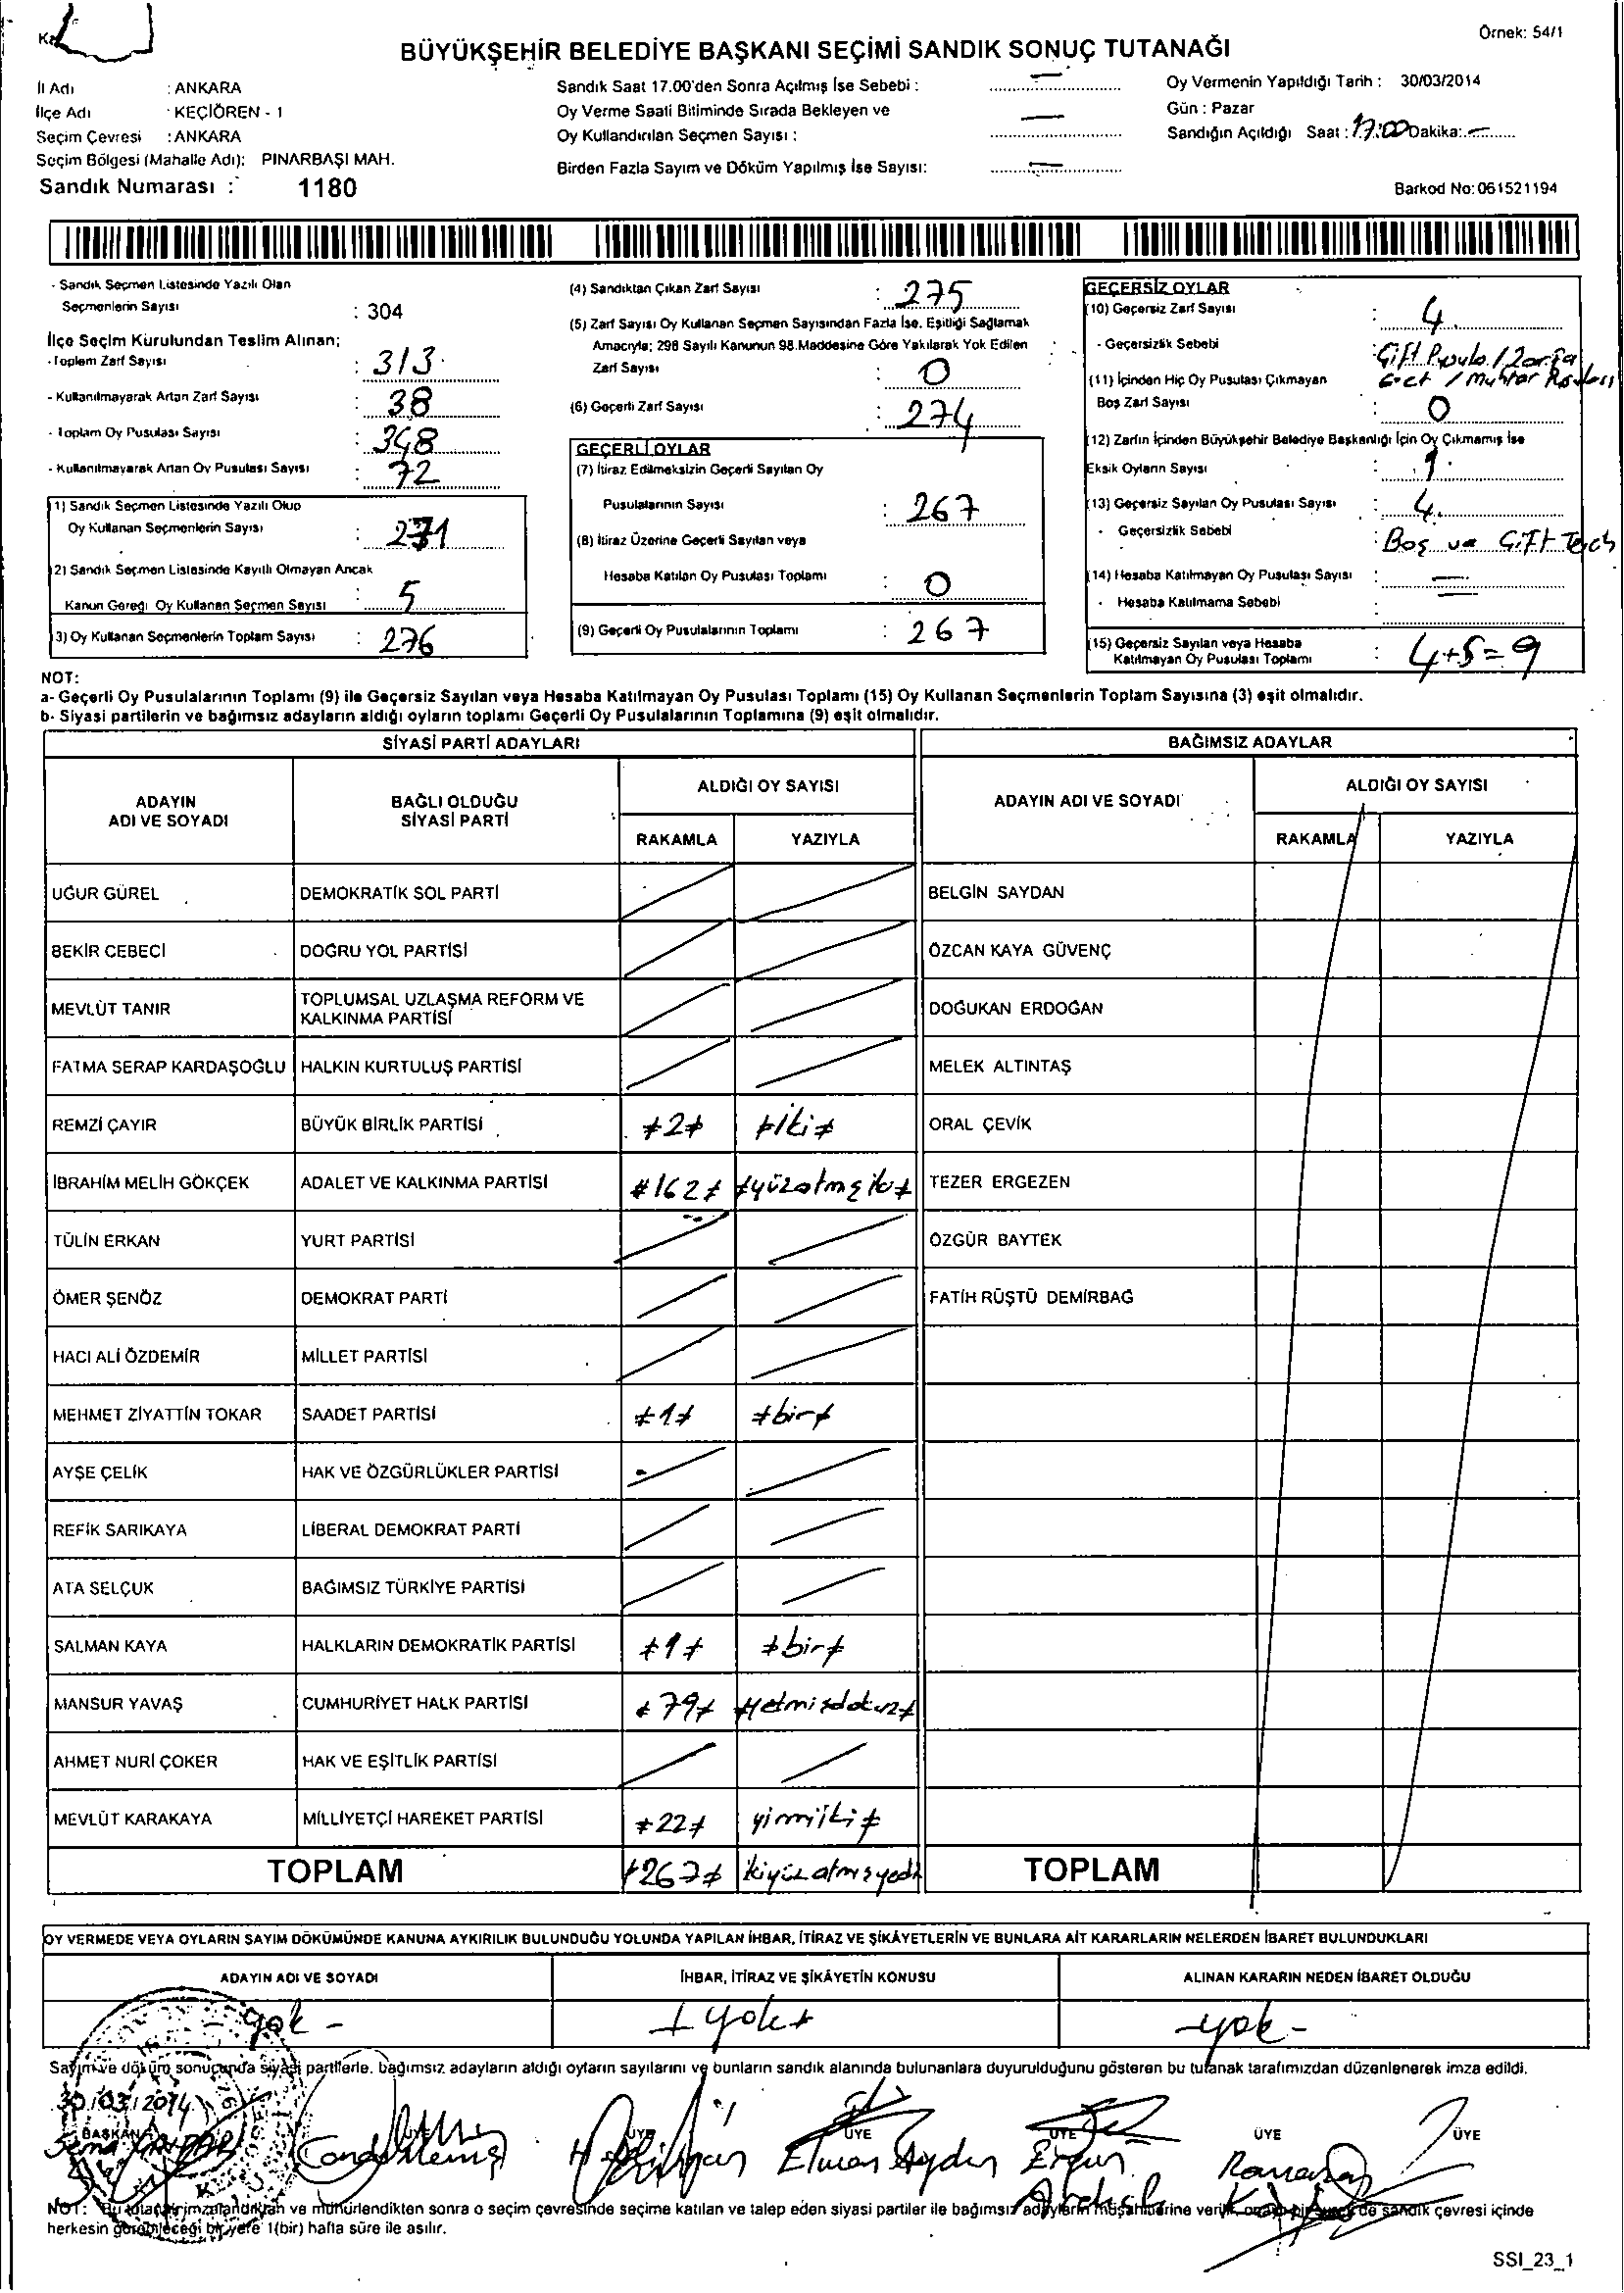 Örnek: 54/1
BÜYÜKŞEHİR BELEDİYE BAŞKANI SEÇİMİ SANDIK SONUÇ TUTANAĞI
İl Adı : ANKARA
İlçe Adı : KEÇİÖREN - 1
Seçim Çevresi : ANKARA
Seçim Bölgesi (Mahalle Adı): PINARBAŞI MAH.
Sandık Numarası : 1180
Sandık Saat 17.00'den Sonra Açılmış İse Sebebi : —
Oy Verme Saati Bitiminde Sırada Bekleyen ve
Oy Kullandırılan Seçmen Sayısı : —
Birden Fazla Sayım ve Döküm Yapılmış İse Sayısı: —
Oy Vermenin Yapıldığı Tarih : 30/03/2014
Gün : Pazar
Sandığın Açıldığı Saat : 17:00 Dakika: —
Barkod No: 061521194
- Sandık Seçmen Listesinde Yazılı Olan
Seçmenlerin Sayısı : 304
İlçe Seçim Kurulundan Teslim Alınan;
- Toplam Zarf Sayısı : 313
- Kullanılmayarak Artan Zarf Sayısı : 38
- Toplam Oy Pusulası Sayısı : 348
- Kullanılmayarak Artan Oy Pusulası Sayısı : 72
1) Sandık Seçmen Listesinde Yazılı Olup
Oy Kullanan Seçmenlerin Sayısı : 271
2) Sandık Seçmen Listesinde Kayıtlı Olmayan Ancak
Kanun Gereği Oy Kullanan Seçmen Sayısı : 5
3) Oy Kullanan Seçmenlerin Toplam Sayısı : 276
(4) Sandıktan Çıkan Zarf Sayısı : 275
(5) Zarf Sayısı Oy Kullanan Seçmen Sayısından Fazla İse, Eşitliği Sağlamak
Amacıyla; 298 Sayılı Kanunun 98.Maddesine Göre Yakılarak Yok Edilen
Zarf Sayısı : 0
(6) Geçerli Zarf Sayısı : 274
GEÇERLİ OYLAR
(7) İtiraz Edilmeksizin Geçerli Sayılan Oy
Pusulalarının Sayısı : 267
(8) İtiraz Üzerine Geçerli Sayılan veya
Hesaba Katılan Oy Pusulası Toplamı : 0
(9) Geçerli Oy Pusulalarının Toplamı : 267
GEÇERSİZ OYLAR
(10) Geçersiz Zarf Sayısı : 4
- Geçersizlik Sebebi : Çift Pusula /
(11) İçinden Hiç Oy Pusulası Çıkmayan
Boş Zarf Sayısı : 0
(12) Zarfın İçinden Büyükşehir Belediye Başkanlığı İçin Oy Çıkmamış İse
Eksik Oyların Sayısı : 1
(13) Geçersiz Sayılan Oy Pusulası Sayısı : 4
- Geçersizlik Sebebi : Boş ve Çift Tercih
(14) Hesaba Katılmayan Oy Pusulası Sayısı : —
- Hesaba Katılmama Sebebi :
(15) Geçersiz Sayılan veya Hesaba
Katılmayan Oy Pusulası Toplamı : 4+5=9
NOT:
a- Geçerli Oy Pusulalarının Toplamı (9) ile Geçersiz Sayılan veya Hesaba Katılmayan Oy Pusulası Toplamı (15) Oy Kullanan Seçmenlerin Toplam Sayısına (3) eşit olmalıdır.
b- Siyasi partilerin ve bağımsız adayların aldığı oyların toplamı Geçerli Oy Pusulalarının Toplamına (9) eşit olmalıdır.
SİYASİ PARTİ ADAYLARI BAĞIMSIZ ADAYLAR
ADAYIN ADI VE SOYADI BAĞLI OLDUĞU SİYASİ PARTİ ALDIĞI OY SAYISI ADAYIN ADI VE SOYADI ALDIĞI OY SAYISI
RAKAMLA YAZIYLA RAKAMLA YAZIYLA
UĞUR GÜREL DEMOKRATİK SOL PARTİ BELGİN SAYDAN
BEKİR CEBECİ DOĞRU YOL PARTİSİ ÖZCAN KAYA GÜVENÇ
MEVLÜT TANIR TOPLUMSAL UZLAŞMA REFORM VE KALKINMA PARTİSİ DOĞUKAN ERDOĞAN
FATMA SERAP KARDAŞOĞLU HALKIN KURTULUŞ PARTİSİ MELEK ALTINTAŞ
REMZİ ÇAYIR BÜYÜK BİRLİK PARTİSİ ≠2≠ ≠iki≠ ORAL ÇEVİK
İBRAHİM MELİH GÖKÇEK ADALET VE KALKINMA PARTİSİ ≠162≠ ≠yüzatmışiki≠ TEZER ERGEZEN
TÜLİN ERKAN YURT PARTİSİ ÖZGÜR BAYTEK
ÖMER ŞENÖZ DEMOKRAT PARTİ FATİH RÜŞTÜ DEMİRBAĞ
HACI ALİ ÖZDEMİR MİLLET PARTİSİ
MEHMET ZİYATTİN TOKAR SAADET PARTİSİ ≠1≠ ≠bir≠
AYŞE ÇELİK HAK VE ÖZGÜRLÜKLER PARTİSİ
REFİK SARIKAYA LİBERAL DEMOKRAT PARTİ
ATA SELÇUK BAĞIMSIZ TÜRKİYE PARTİSİ
SALMAN KAYA HALKLARIN DEMOKRATİK PARTİSİ ≠1≠ ≠bir≠
MANSUR YAVAŞ CUMHURİYET HALK PARTİSİ ≠79≠ ≠yetmişdokuz≠
AHMET NURİ ÇOKER HAK VE EŞİTLİK PARTİSİ
MEVLÜT KARAKAYA MİLLİYETÇİ HAREKET PARTİSİ ≠22≠ yirmiiki≠
TOPLAM ≠267≠ ikiyüzatmışyedi TOPLAM
OY VERMEDE VEYA OYLARIN SAYIM DÖKÜMÜNDE KANUNA AYKIRILIK BULUNDUĞU YOLUNDA YAPILAN İHBAR, İTİRAZ VE ŞİKÂYETLERİN VE BUNLARA AİT KARARLARIN NELERDEN İBARET BULUNDUKLARI
ADAYIN ADI VE SOYADI İHBAR, İTİRAZ VE ŞİKÂYETİN KONUSU ALINAN KARARIN NEDEN İBARET OLDUĞU
yok - yok -yok-
Sayım ve döküm sonucunda siyasi partilerle, bağımsız adayların aldığı oyların sayılarını ve bunların sandık alanında bulunanlara duyurulduğunu gösteren bu tutanak tarafımızdan düzenlenerek imza edildi.
30/03/2014
BAŞKAN ÜYE ÜYE ÜYE ÜYE ÜYE ÜYE
Elvan Aydın
Ramazan
NOT: Bu tutanak imzalandıktan ve mühürlendikten sonra o seçim çevresinde seçime katılan ve talep eden siyasi partiler ile bağımsız adayların müşahitlerine sandık çevresi içinde
herkesin görebileceği bir yere 1(bir) hafta süre ile asılır.
SSI_23_1